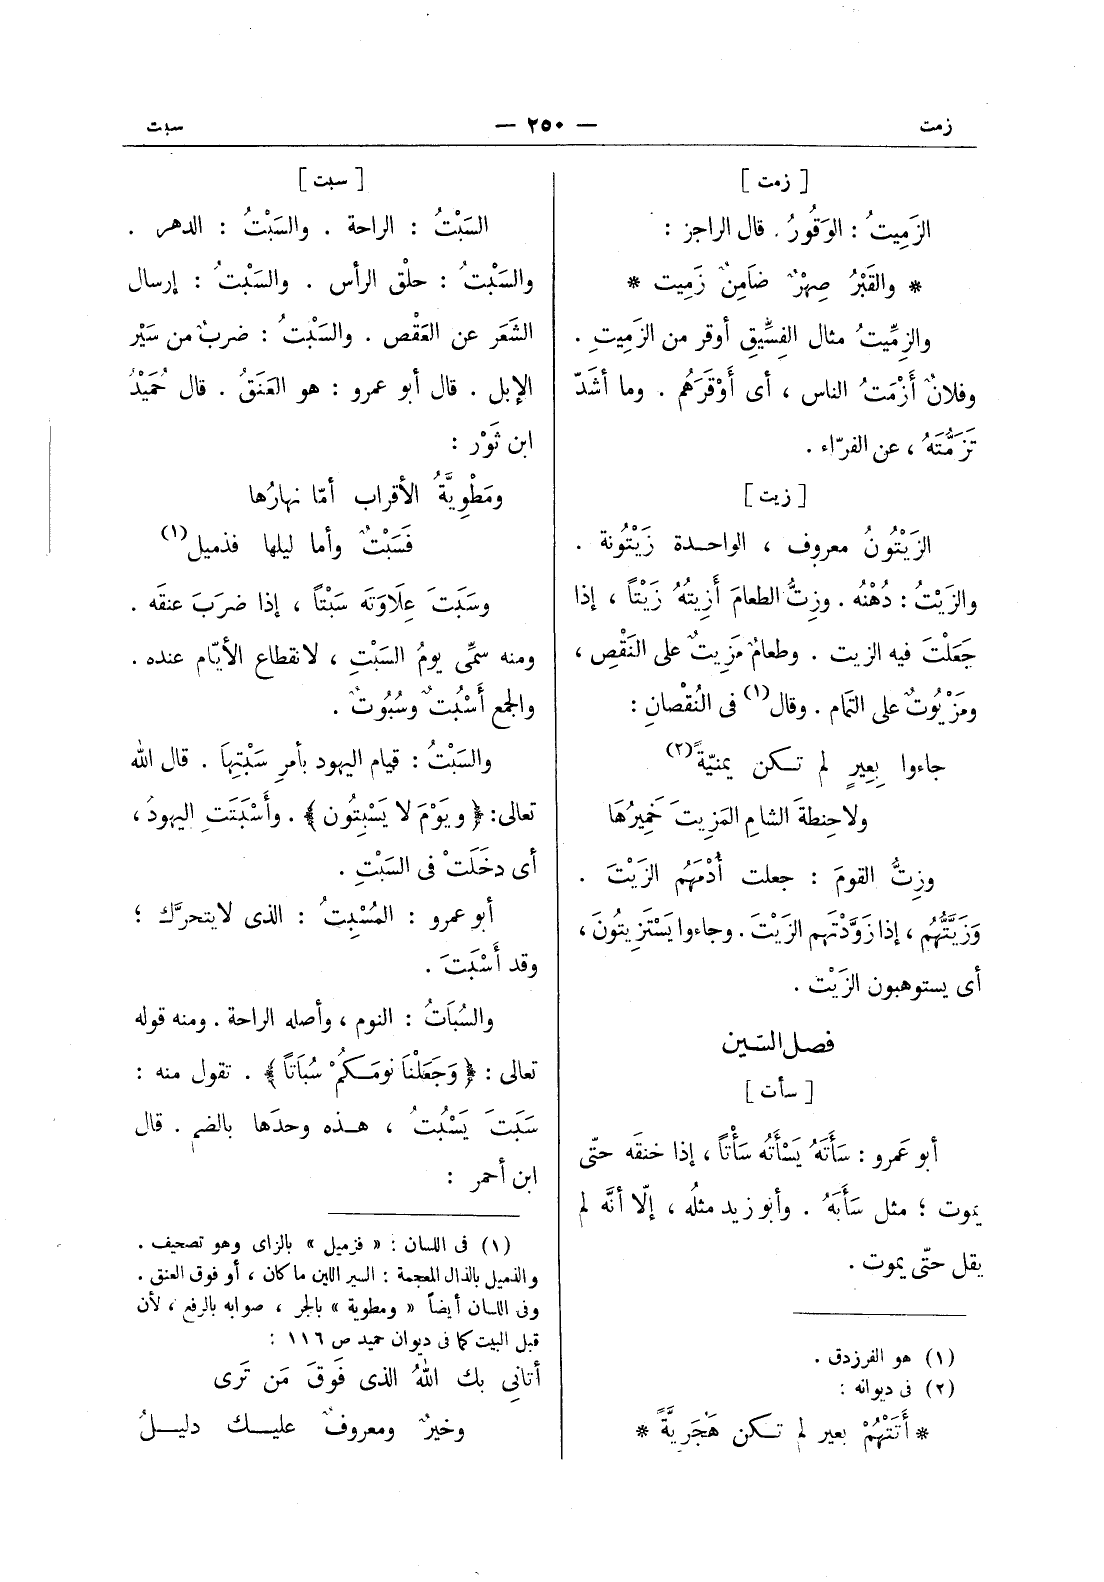 زمت — ٢٥٠ — سبت
[ زمت ]
الزَمِيتُ : الوَقُورُ . قال الراجز :
* والقَبْرُ صِهْرٌ ضَامِنٌ زَمِيت *
والزِمِّيتُ مثال الفِسِّيقِ أوقر من الزَمِيتِ .
وفلانٌ أَزْمَتُ الناس ، أى أَوْقَرَهُم . وما أشَدّ
تَزَمُّتَهُ ، عن الفرّاء .
[ زيت ]
الزَيْتُونُ معروف ، الواحدة زَيْتُونة .
والزَيْتُ : دُهْنُه . وزِتُّ الطعامَ أَزِيتُهُ زَيْتاً ، إذا
جَعَلْتَ فيه الزيت . وطعامٌ مَزِيتٌ على النَقْصِ ،
ومَزْيُوتٌ على التمام . وقال(١) فى النُقْصانِ :
جاءوا بِعِيرٍ لم تكن يمنيّةً(٢)
ولاحِنطةَ الشامِ المَزِيتَ خَمِيرُهَا
وزِتُّ القومَ : جعلت أُدْمَهُم الزَيْتَ .
وَزَيَّتُّهُم ، إذا زَوَّدْتَهم الزَيْتَ . وجاءوا يَسْتَزِيتُونَ ،
أى يستوهبون الزَيْتَ .
فصل السّين
[ سأت ]
أبو عَمرو : سَأَتَهُ يَسْأَتُه سَأْتاً ، إذا خنقه حتّى
يموت ؛ مثل سَأَبَهُ . وأبو زيد مثلُه ، إلّا أنَّه لم
يقل حتّى يموت .
(١) هو الفرزدق .
(٢) فى ديوانه :
* أَتَتْهُمْ بعير لم تكن هَجَرِيَّةً *
[ سبت ]
السَبْتُ : الراحة . والسَبْتُ : الدهر .
والسَبْتُ : حلْق الرأس . والسَبْتُ : إرسال
الشَعَر عن العَقْص . والسَبْتُ : ضربٌ من سَيْر
الإبل . قال أبو عمرو : هو العَنَقُ . قال حُمَيْدُ
ابن ثَوْر :
ومَطْوِيَّةُ الأقراب أمّا نهارُها
فَسَبْتٌ وأما ليلها فذميل(١)
وسَبَتَ عِلَاوَتَه سَبْتاً ، إذا ضرَبَ عنقه .
ومنه سمِّى يومُ السَبْتِ ، لانقطاع الأيّام عنده .
والجمع أَسْبُتٌ وسُبُوتٌ .
والسَبْتُ : قيام اليهود بأمرِ سَبْتِهَا . قال الله
تعالى: ﴿ ويَوْمَ لا يَسْبِتُون ﴾ . وأَسْبَتَتِ اليهودُ ،
أى دخَلَتْ فى السَبْتِ .
أبو عمرو : المُسْبِتُ : الذى لايتحرَّك ؛
وقد أَسْبَتَ .
والسُبَاتُ : النوم ، وأصله الراحة . ومنه قوله
تعالى : ﴿ وَجَعَلْنَا نومَكُمْ سُبَاتاً ﴾ . تقول منه :
سَبَتَ يَسْبُتُ ، هذه وحدَها بالضم . قال
ابن أحمر :
(١) فى اللسان : « فزميل » بالزاى وهو تصحيف .
والذميل بالذال المعجمة : السير اللين ماكان ، أو فوق العنق .
وفى اللسان أيضاً « ومطوية » بالجر ، صوابه بالرفع ، لأن
قبل البيت كما فى ديوان حميد ص ١١٦ :
أتانِي بك اللهُ الذى فَوقَ مَن تَرى
وخيرٌ ومعروفٌ عليك دليلُ